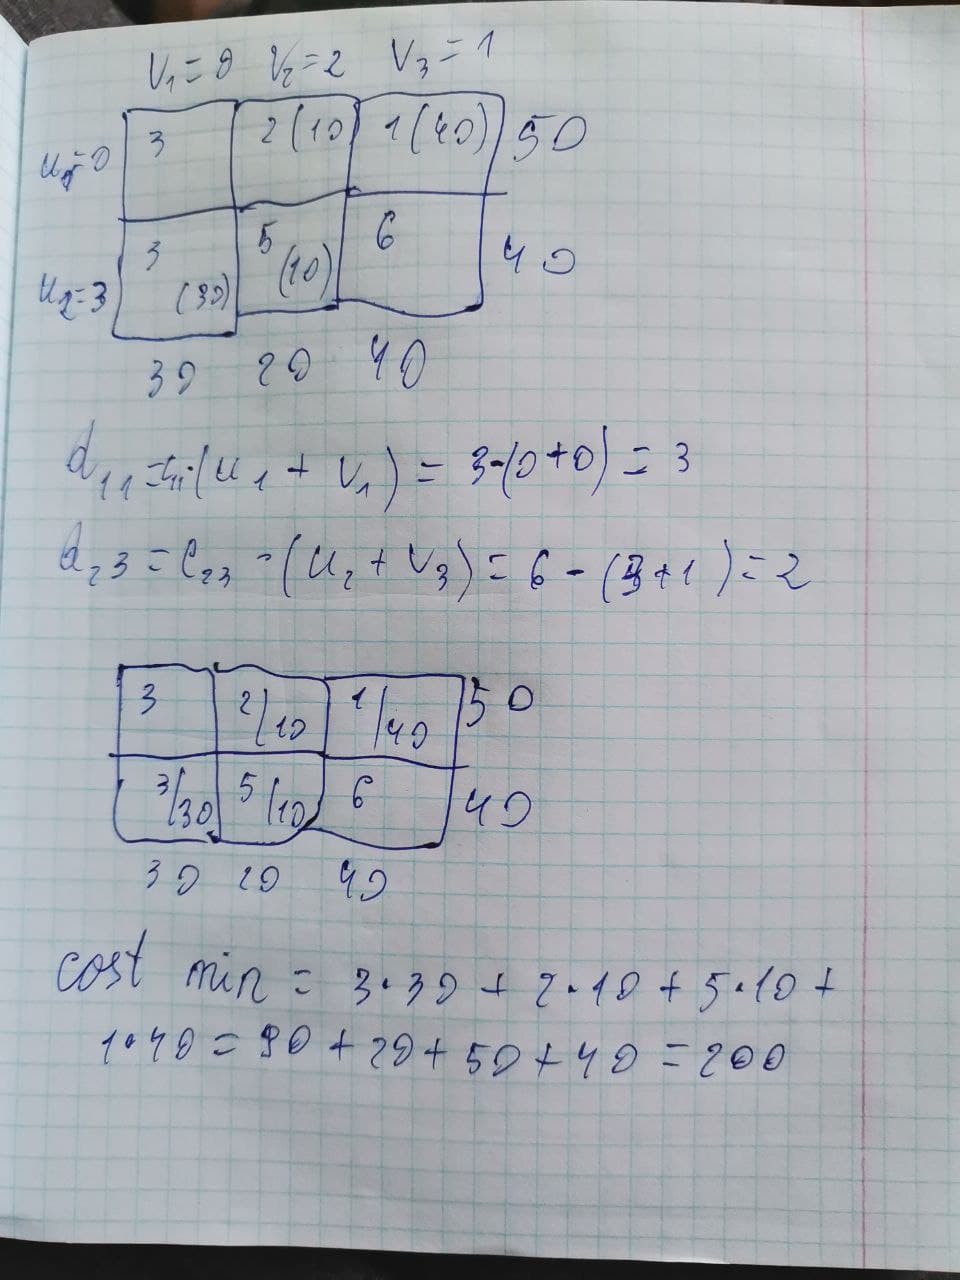 V₁=0 V₂=2 V₃=1
u₁=0 3 2(10 1(40) 50
u₂=3 3 (30) 5 (10) 6 40
30 20 40
d₁₁ = (u₁ + v₁) = 3-(0+0) = 3
d₂₃ = C₂₃ - (u₂ + v₃) = 6 - (3+1) = 2
3 2/10 1/40 50
3/30 5/10 6 40
30 20 40
cost min = 3·30 + 2·10 + 5·10 +
1·40 = 90 + 20 + 50 + 40 = 200